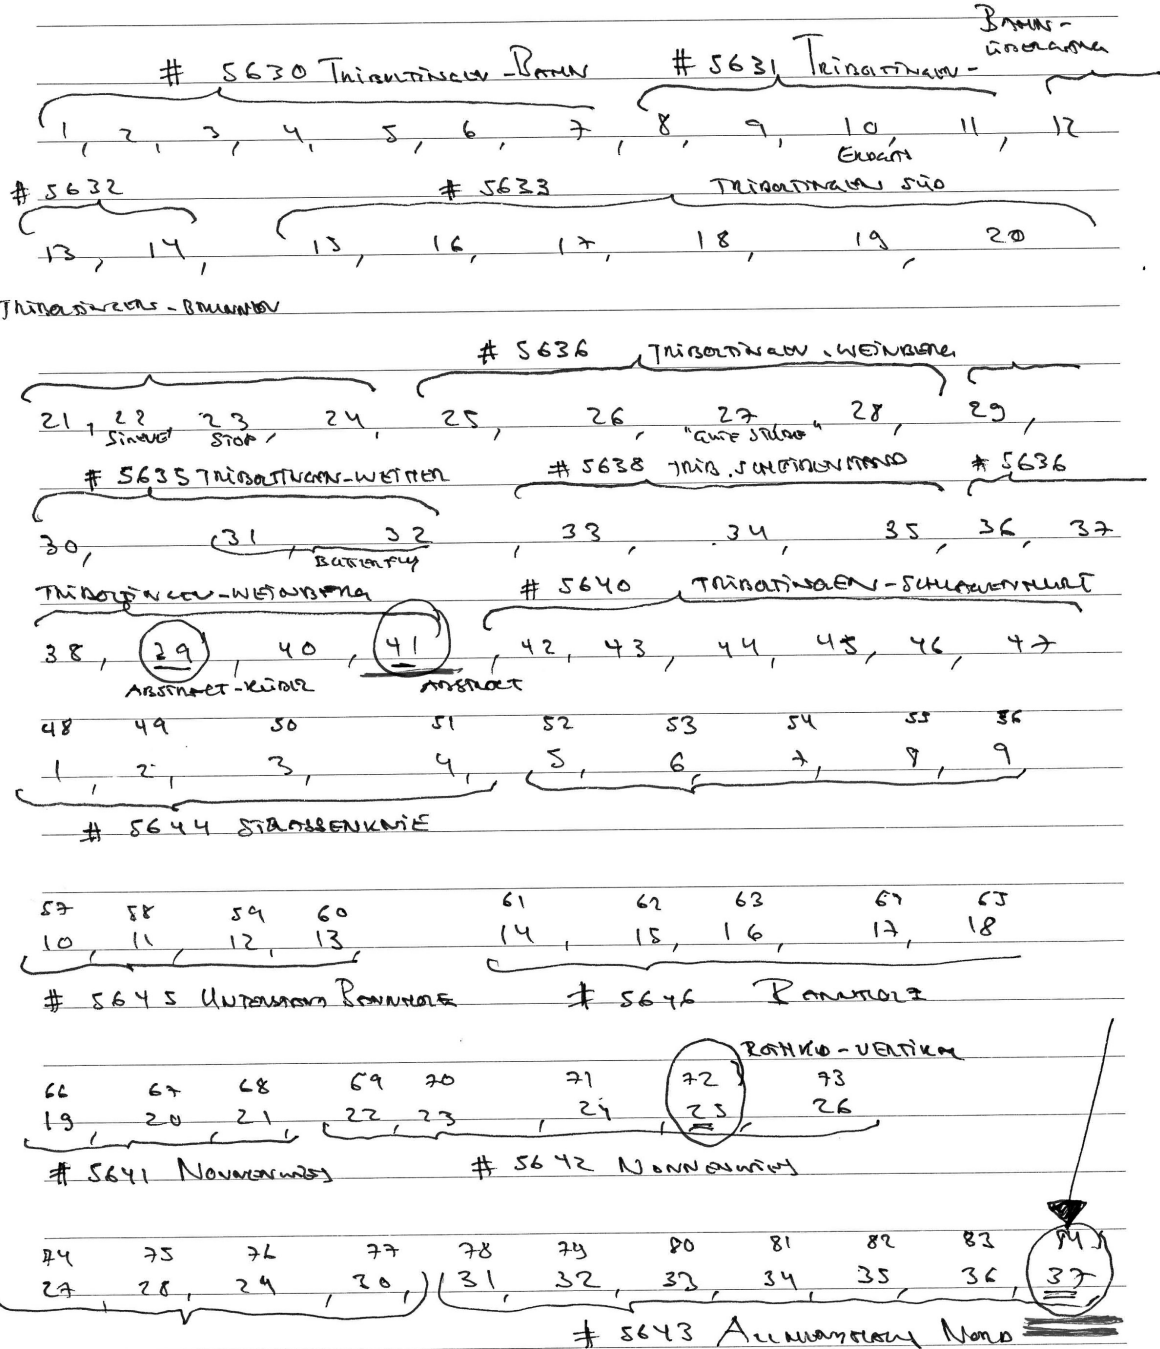 BAHN-
# 5630 TRIBOLTINGEN-BAHN # 5631 TRIBOLTINGEN-
1, 2, 3, 4, 5, 6, 7, 8, 9, 10, 11, 12
# 5632 # 5633 TRIBOLTINGEN SÜD
13, 14, 15, 16, 17, 18, 19, 20
TRIBOLTINGEN-BRUNNEN
# 5636 TRIBOLTINGEN-WEINBERG
21, 22, 23, 24, 25, 26, 27, 28, 29,
STOP "GUTE STUBE"
# 5635 TRIBOLTINGEN-WEIHER # 5638 TRIB. SCHEIBENSTAND # 5636
30, 31, 32, 33, 34, 35, 36, 37
BUTTERFLY
TRIBOLTINGEN-WEINBERG # 5640 TRIBOLTINGEN-
38, 39, 40, 41, 42, 43, 44, 45, 46, 47
ABSTRACT- ABSTRACT
48 49 50 51 52 53 54 55 56
1, 2, 3, 4, 5, 6, 7, 8, 9
# 5644 STRASSENKNIE
57 58 59 60 61 62 63 64 65
10, 11, 12, 13, 14, 15, 16, 17, 18
# 5645 UNTERSTAND BANNHOLZ # 5646 BANNHOLZ
ROTHKO-VERTIKAL
66 67 68 69 70 71 72 73
19, 20, 21, 22, 23, 24, 25, 26
# 5641 NONNENWIES # 5642 NONNENWIES
74 75 76 77 78 79 80 81 82 83 84
27, 28, 29, 30, 31, 32, 33, 34, 35, 36, 37
# 5643 NORD